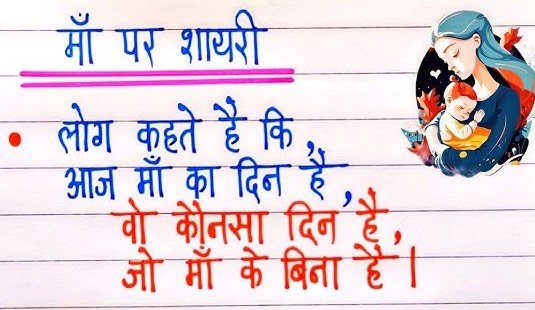 माँ पर शायरी
लोग कहते हैं कि,
आज माँ का दिन है,
वो कौनसा दिन है,
जो माँ के बिना है।